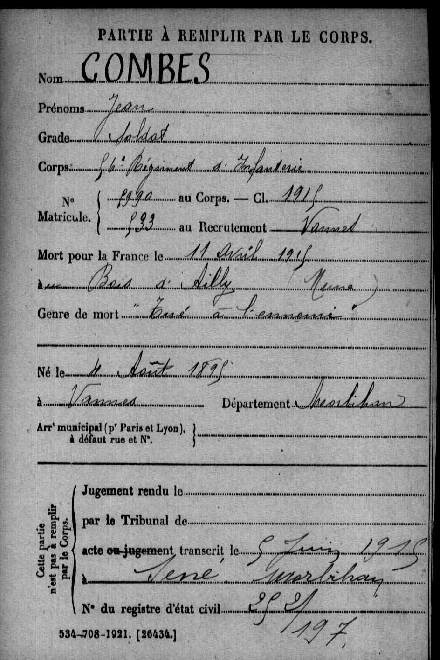 PARTIE À REMPLIR PAR LE CORPS.
Nom COMBES
Prénoms Jean
Grade Soldat
Corps 56e Régiment d'Infanterie
N° Matricule. { 5990 au Corps. — Cl. 1915
{ 533 au Recrutement Vannes
Mort pour la France le 11 Avril 1915
à Bois d'Ailly (Meuse)
Genre de mort "Tué à l'ennemi"
Né le 4 Août 1895
à Vannes Département Morbihan
Arrt municipal (pr Paris et Lyon), à défaut rue et N°. }
Cette partie n'est pas à remplir par le Corps.
Jugement rendu le
par le Tribunal de
acte ou jugement, transcrit le 5 Juin 1915
à Séné Morbihan
N° du registre d'état civil
197.
534-708-1921. [26434.]